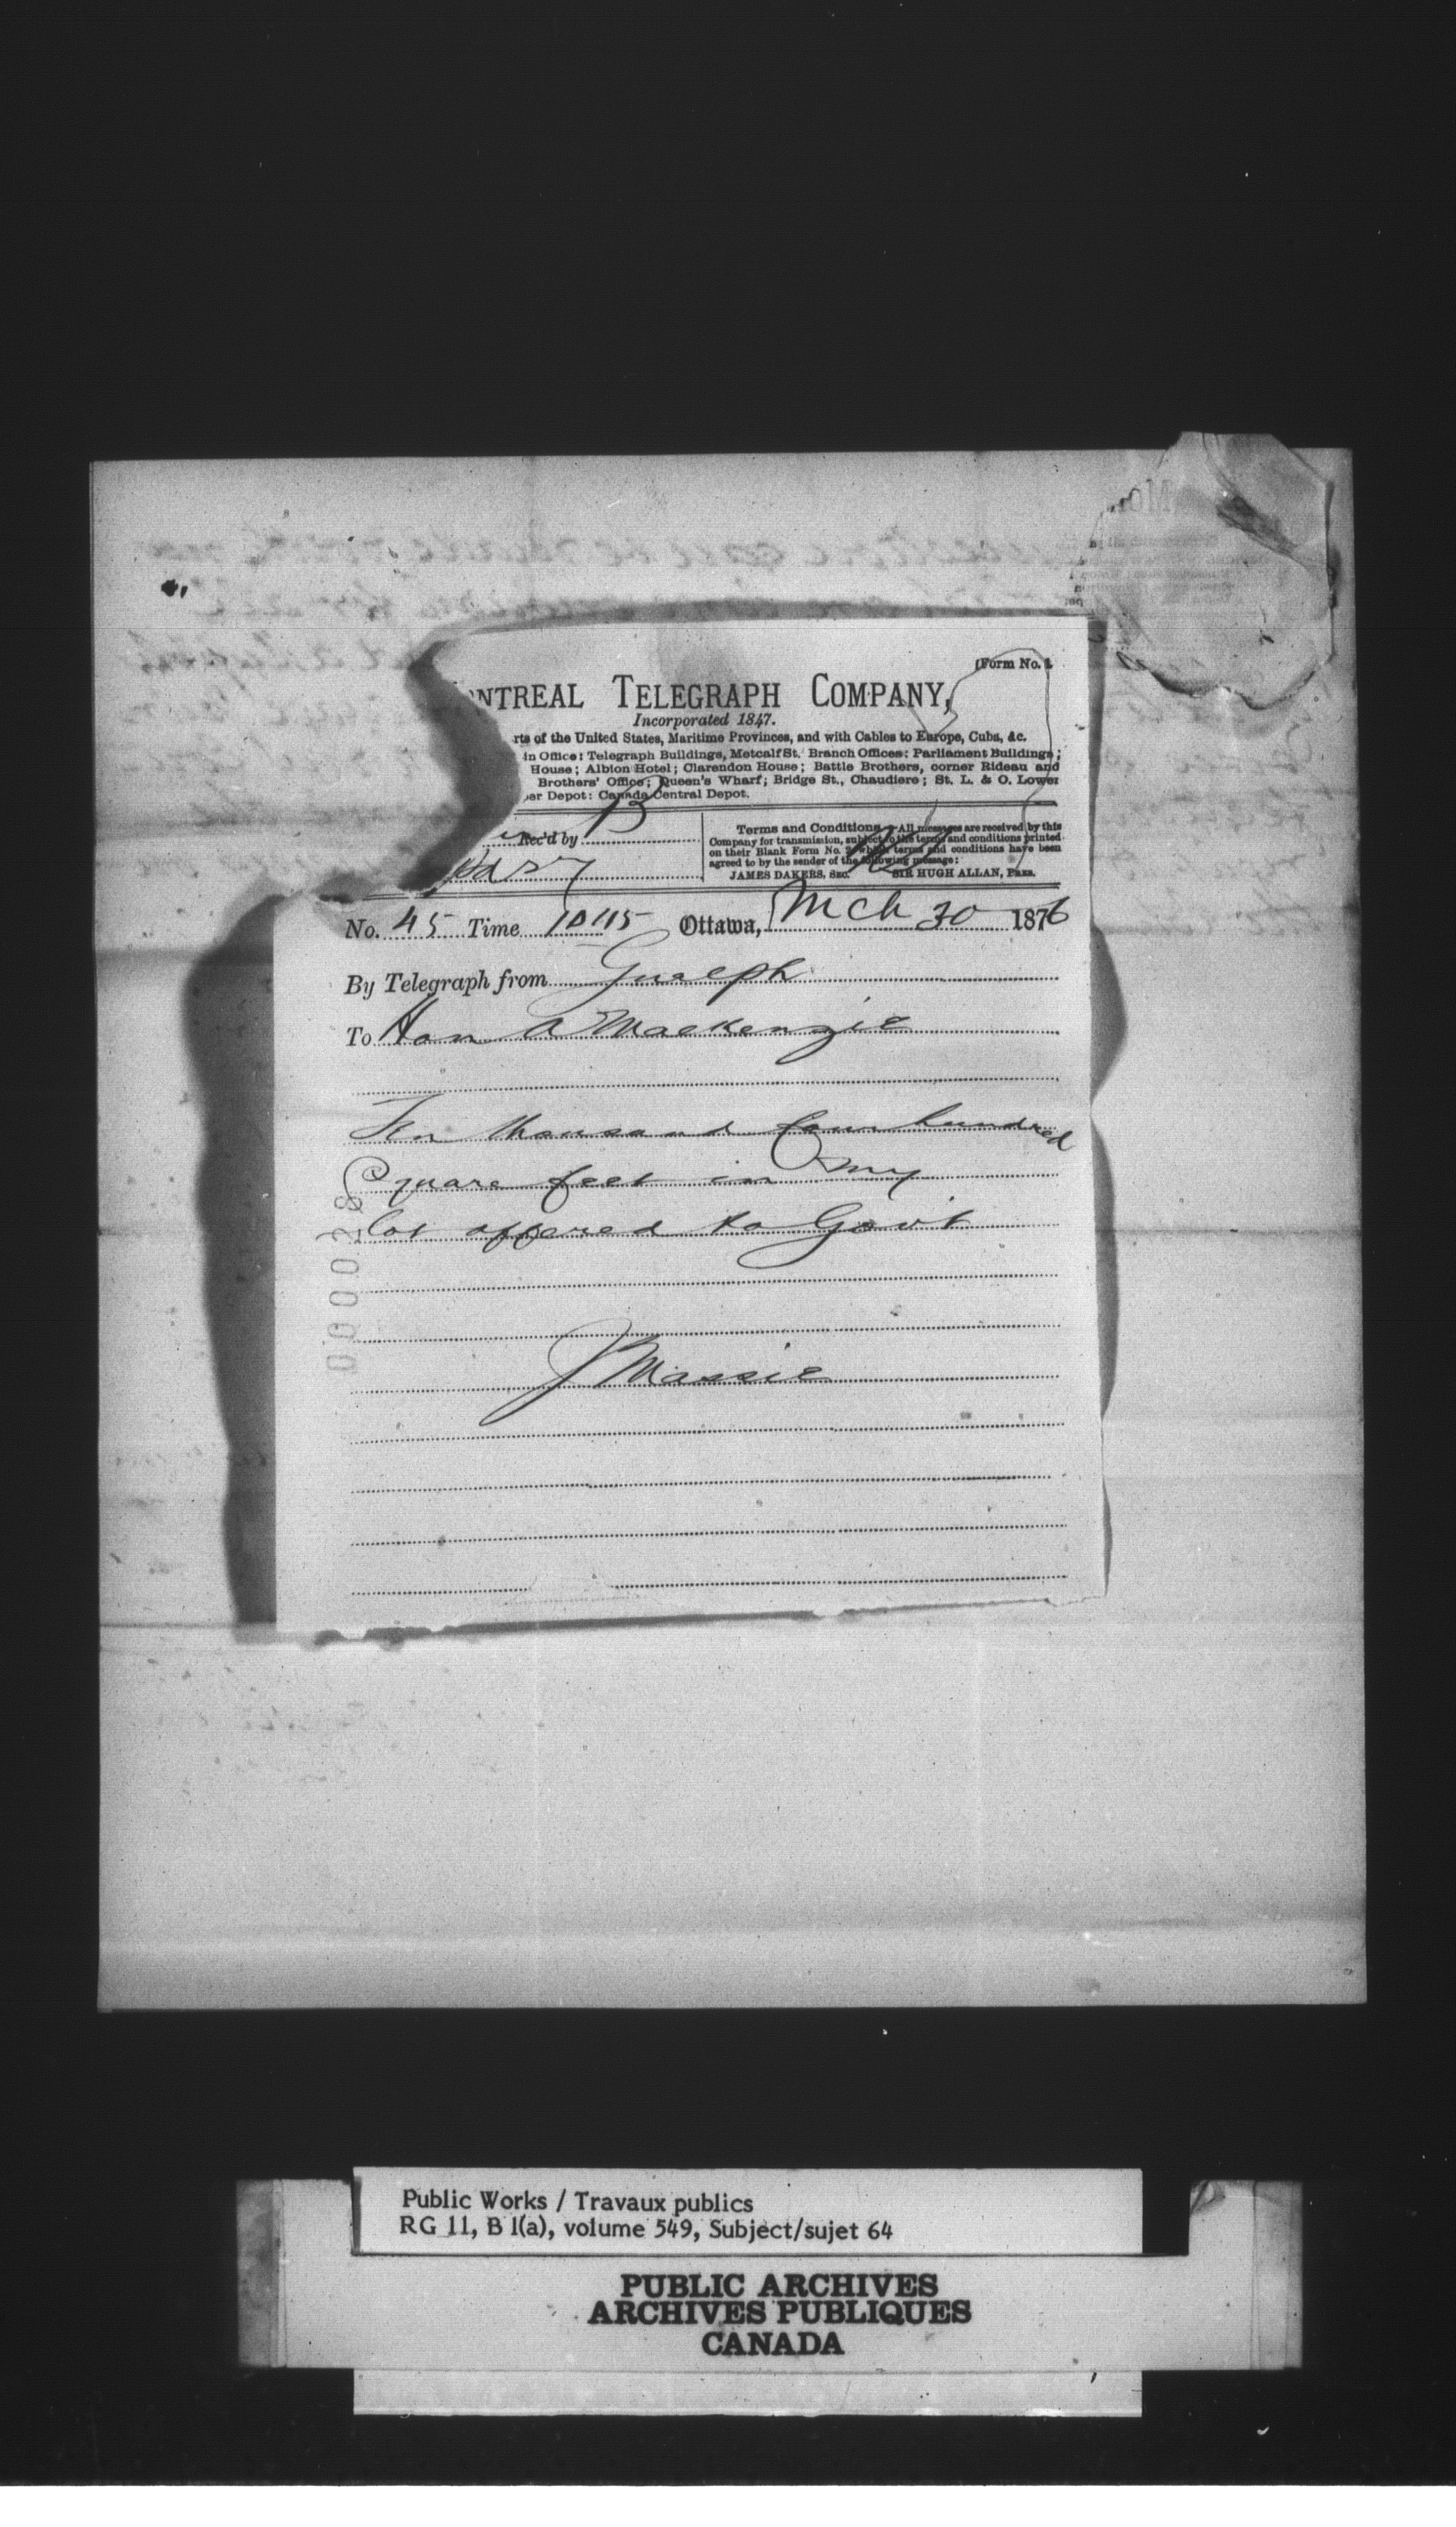 (Form No. 1
ONTREAL TELEGRAPH COMPANY,
Incorporated 1847.
rts of the United States, Maritime Provinces, and with Cables to Europe, Cuba, &c.
in Office: Telegraph Buildings, Metcalf St. Branch Offices: Parliament Buildings;
House; Albion Hotel; Clarendon House; Battle Brothers, corner Rideau and
Brothers' Office; Queen's Wharf; Bridge St., Chaudiere; St. L. & O. Lower
per Depot: Canada Central Depot.
Rec'd by B
Terms and Conditions.—All messages are received by this
Company for transmission, subject to the terms and conditions printed
on their Blank Form No. 2, which terms and conditions have been
agreed to by the sender of the following message:
JAMES DAKERS, SEC. SIR HUGH ALLAN, PRES.
No. 45 Time 10 115 Ottawa, Mch 30 1876
By Telegraph from Guelph
To Hon A Mackenzie
Ten thousand four hundred
Square feet in my
lot offered to Govt
J Massie
000028
Public Works / Travaux publics
RG 11, B 1(a), volume 549, Subject/sujet 64
PUBLIC ARCHIVES
ARCHIVES PUBLIQUES
CANADA